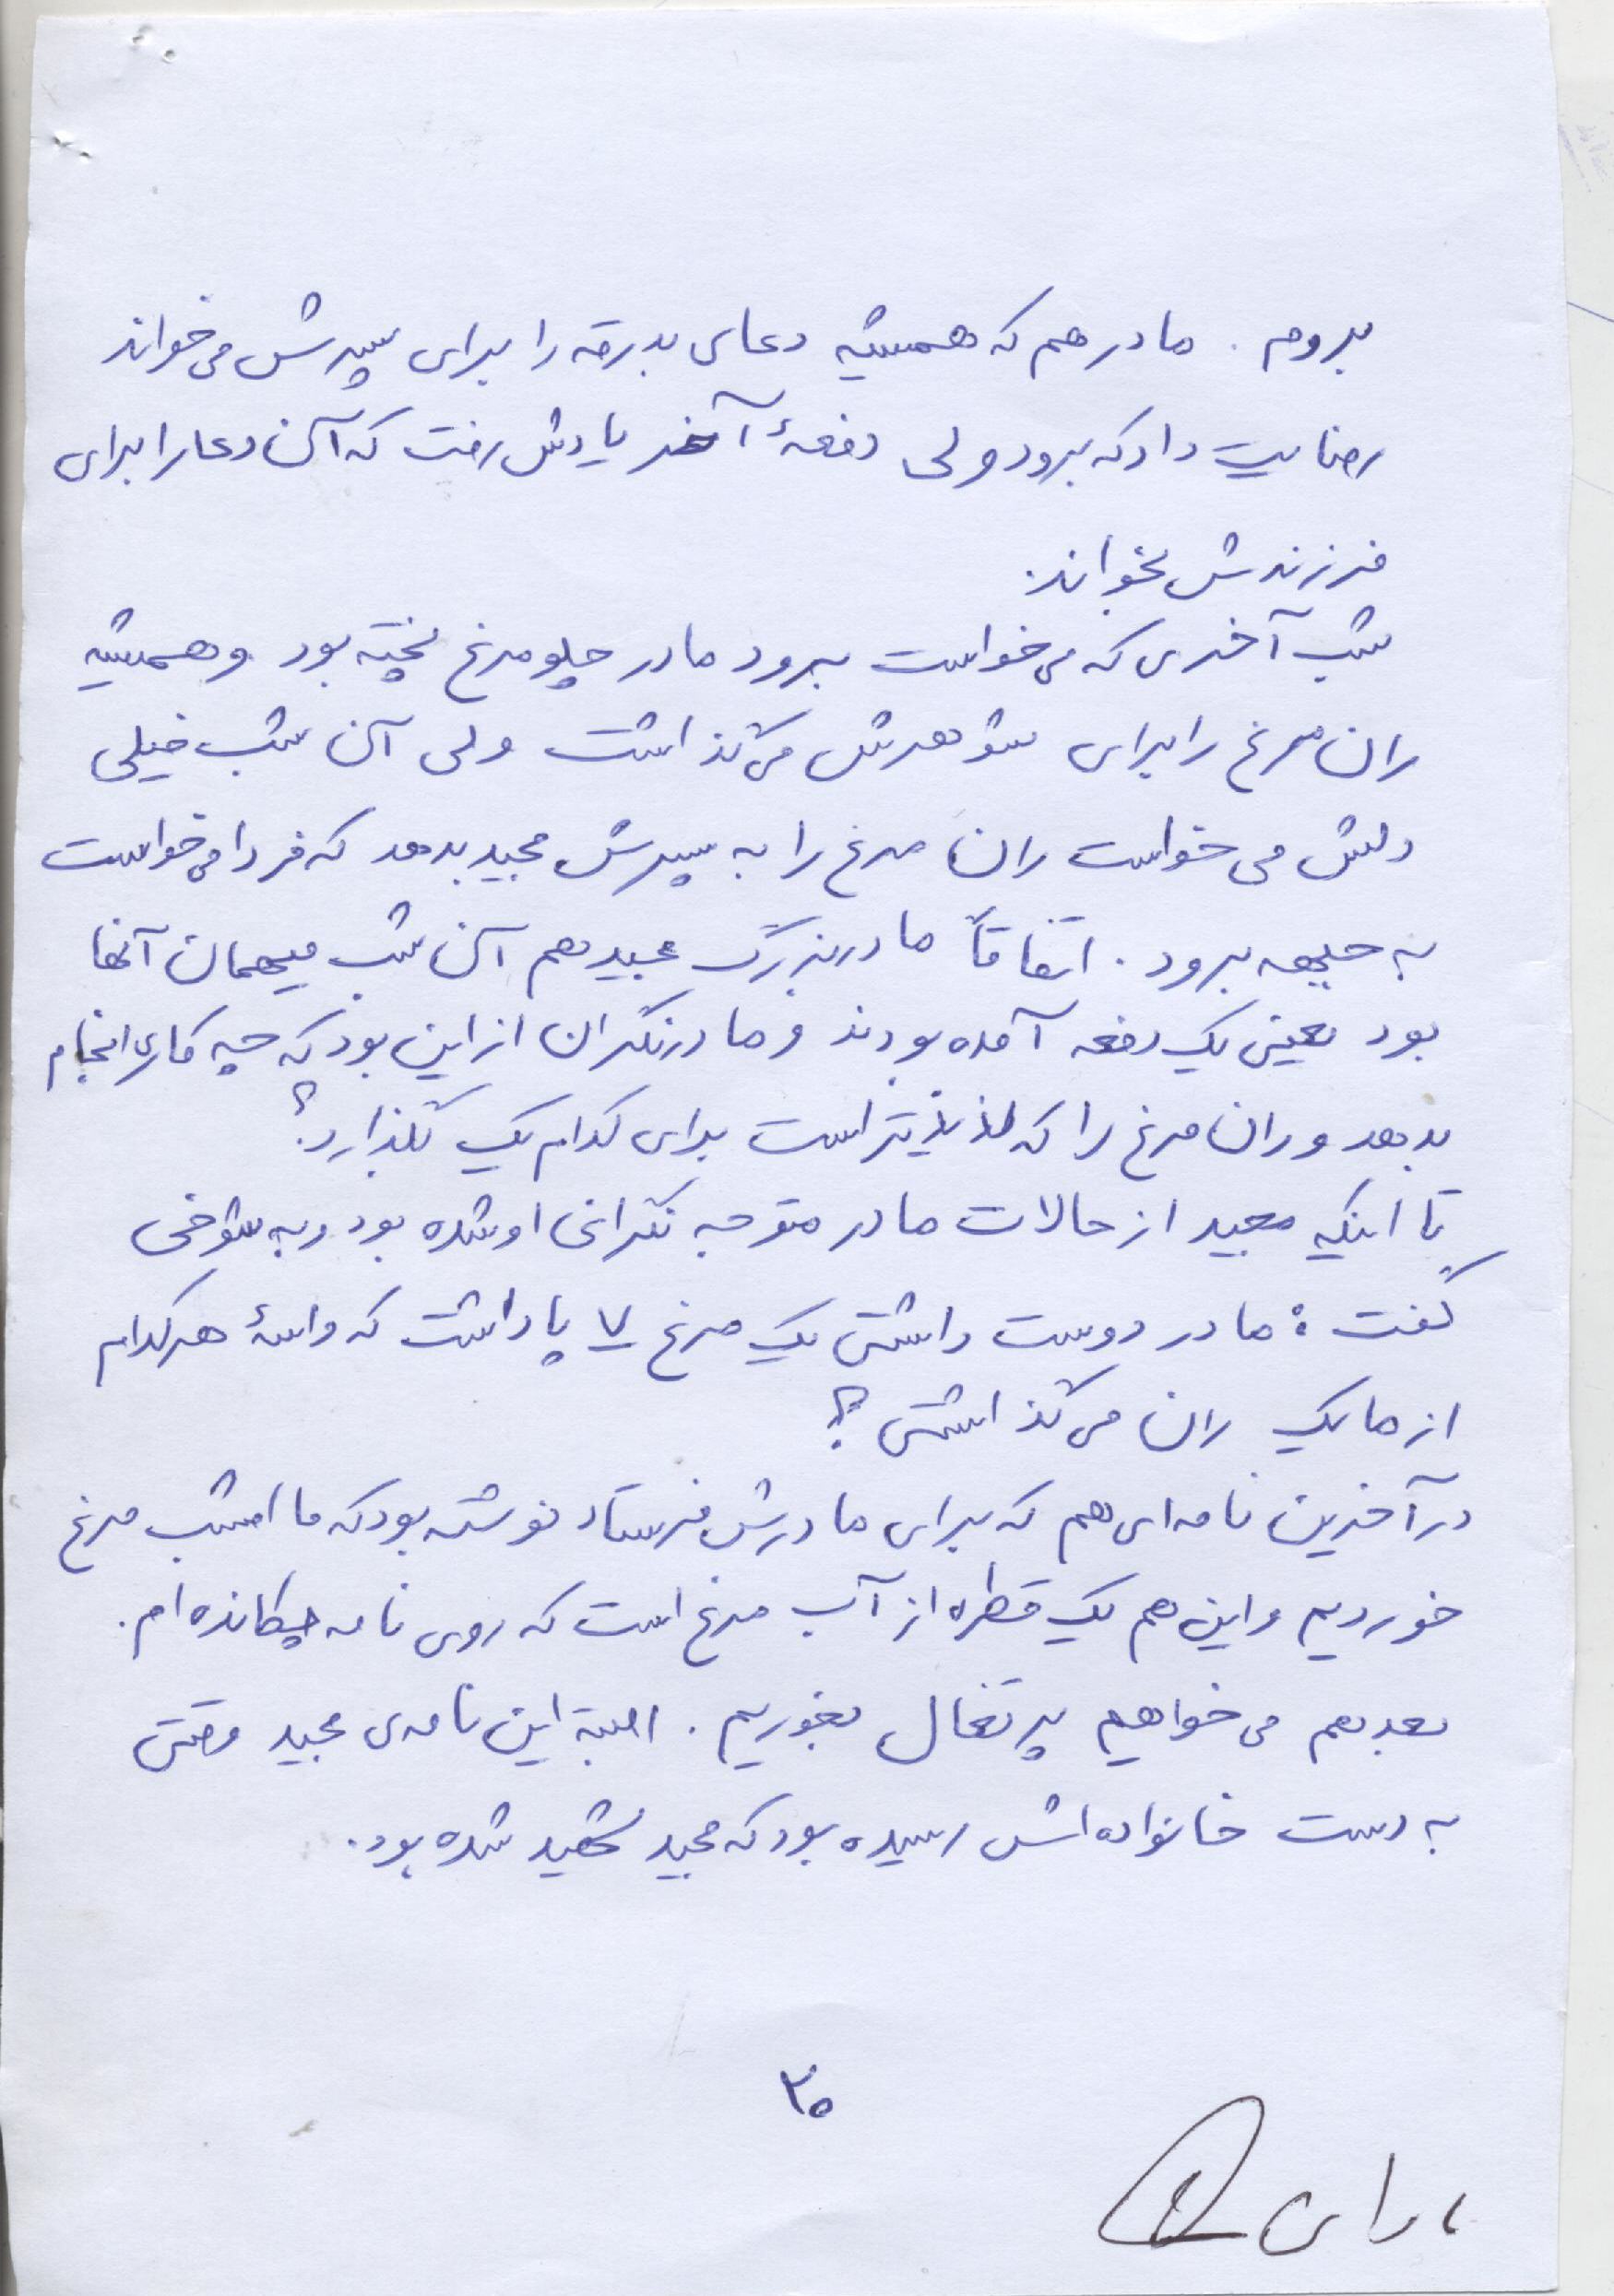 بروم. مادر هم که همیشه دعای بدرقه را برای پسرش می‌خواند
رضایت داد که برود ولی دفعهٔ آخر یادش رفت که آن دعا را برای
فرزندش بخواند.
شب آخری که می‌خواست برود مادر چلومرغ پخته بود و همیشه
ران مرغ را برای شوهرش می‌گذاشت ولی آن شب خیلی
دلش می‌خواست ران مرغ را به پسرش مجید بدهد که فردا می‌خواست
به جبهه برود. اتفاقاً مادربزرگ مجید هم آن شب میهمان آنها
بود یعنی یک دفعه آمده بودند و مادر نگران از این بود که چه کاری انجام
بدهد و ران مرغ را که لذیذتر است برای کدام یک بگذارد؟
تا اینکه مجید از حالات مادر متوجه نگرانی او شده بود و به شوخی
گفت: مادر دوست داشتی یک مرغ ۷ پا داشت که واسهٔ هر کدام
از ما یک ران می‌گذاشتی؟
در آخرین نامه‌ای هم که برای مادرش فرستاد نوشته بود که ما امشب مرغ
خوردیم و این هم یک قطره از آب مرغ است که روی نامه چکانده‌ام.
بعد هم می‌خواهیم پرتغال بخوریم. البته این نامه‌ی مجید وقتی
به دست خانواده‌اش رسیده بود که مجید شهید شده بود.
۲۰